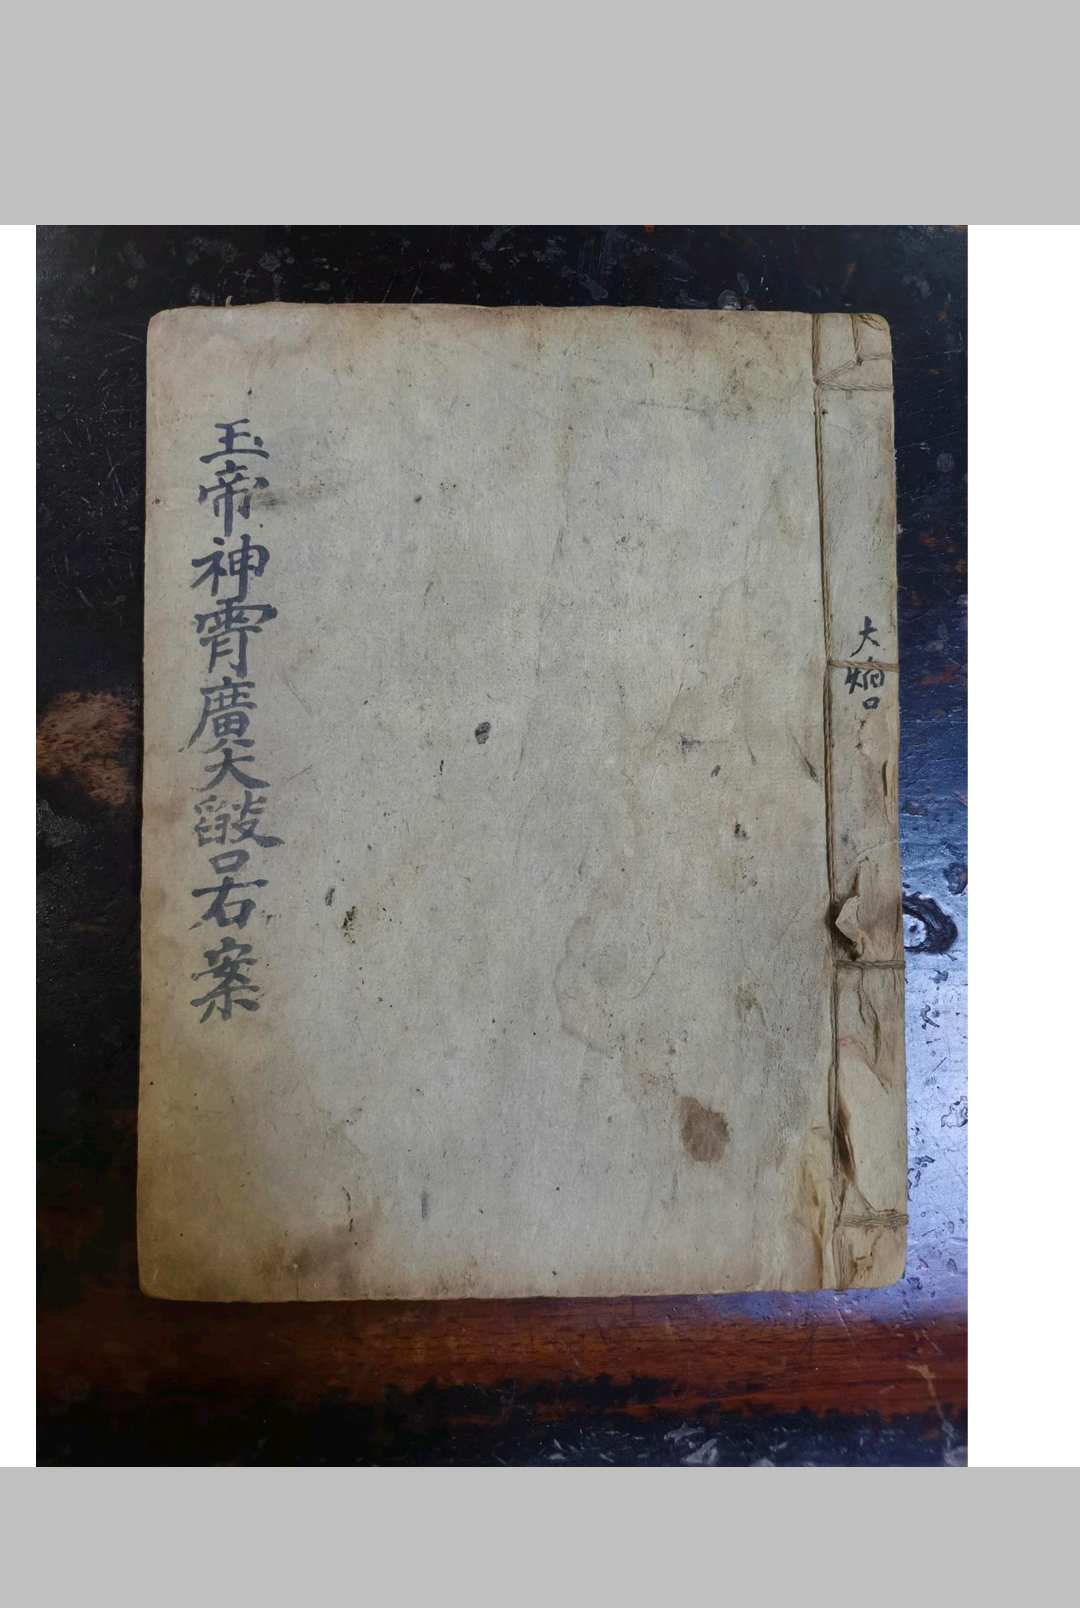 大焰口
玉帝神霄廣大燄口右案